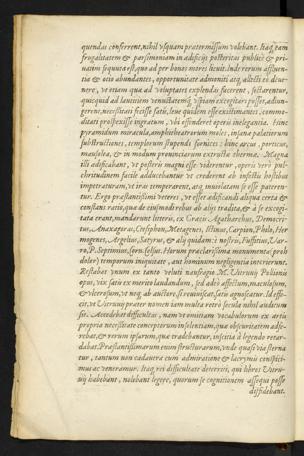 quendas conferrent, nihil vsquam prætermissum volebant. Itaq; eam
frugalitatem & parsimoniam in ædificijs posteritas publicè & pri-
uatim sequuta est, quo ad per bonos mores licuit. Inde rerum affluen-
tia & ocio abundantes, opportunitate admoniti atq; allecti eò deue-
nere, vt etiam qua ad voluptates explendas facerent, sectarentur,
quicquid ad lautitiem venustatemq; vspiam excogitari posset, adiun-
gerent, necessitati fecisse satis, leue quidem esse existimantes, commo-
ditati prospexisse ingratum, vbi offenderet operis inelegantia. Hinc
pyramidum miracula, amphitheatrorum moles, insana palatiorum
substructiones, templorum stupendi fornices: hinc arcus, porticus,
mausolea, & in modum promontorij exstructa thermæ. Magna
illi ædificabant, vt posteris magni esse viderentur, operis verò pul-
chritudinem facilè adducebantur vt crederent ab infestis hostibus
impetraturam, vt iras temperarent, atq; inuiolatam se esse paterentur.
Ergo præstantissimi veteres, vt esset ædificandi aliqua certa &
constans ratio, quæ de eiusmodi rebus ab alijs tradita, & à se excogi-
tata erant, mandarunt litteris, ex Græcis Agatharchus, Democri-
tus, Anaxagoras, Ctesiphon, Metagenes, Ictinus, Carpion, Philo, Her
mogenes, Argelius, Satyrus, & alij quidam: è nostris, Fuffitius, Var-
ro, P. Septimius, Cornel. Celsus. Horum præclarissima monumenta (proh
dolor) temporum iniquitate, aut hominum negligentia interierunt.
Restabat vnum ex tanto veluti naufragio M. Vitruuij Pollionis
opus, vix satis ex merito laudandum, sed adeò affectum, maculosum,
& vlcerosum, vt neq; ab auctore, si reuiuiscat, satis agnoscatur. Id effi-
cit, vt Vitruuij pater nemini iam multa retrò secula nihil audita sunt.
Accedebat difficultas, nam vt omittam vocabulorum ex artis
propria necessitate conceptorum insolentiam, quæ obscuritatem adfe-
rebat, & rerum ipsarum, quæ tradebantur, inscitia à legendo retar-
dabat. Præstantissimarum enim structurarum, vnde quasi vestigia
tur, tantum non cadauera cum admiratione & lacrymis conspici-
mus ac veneramur. Itaq; rei difficultate deterriti, qui libros Vitru-
uij habebant, nolebant legere, quorum se cognitionem assequi posse
diffidebant.